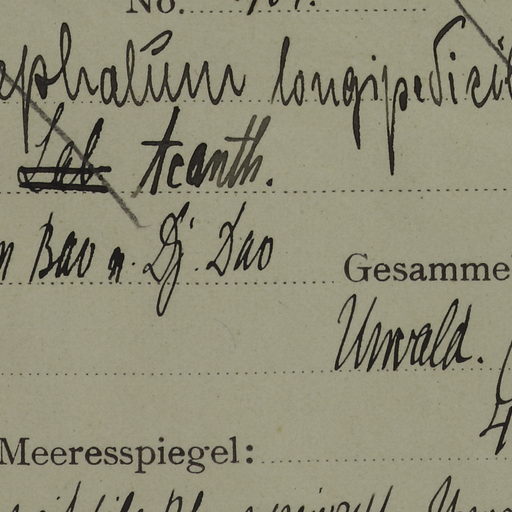 No.
ephalum longipedicil
Lab Acanth.
n Bao n. Dj. Dao
Gesamme
Urwald.
4
Meeresspiegel: